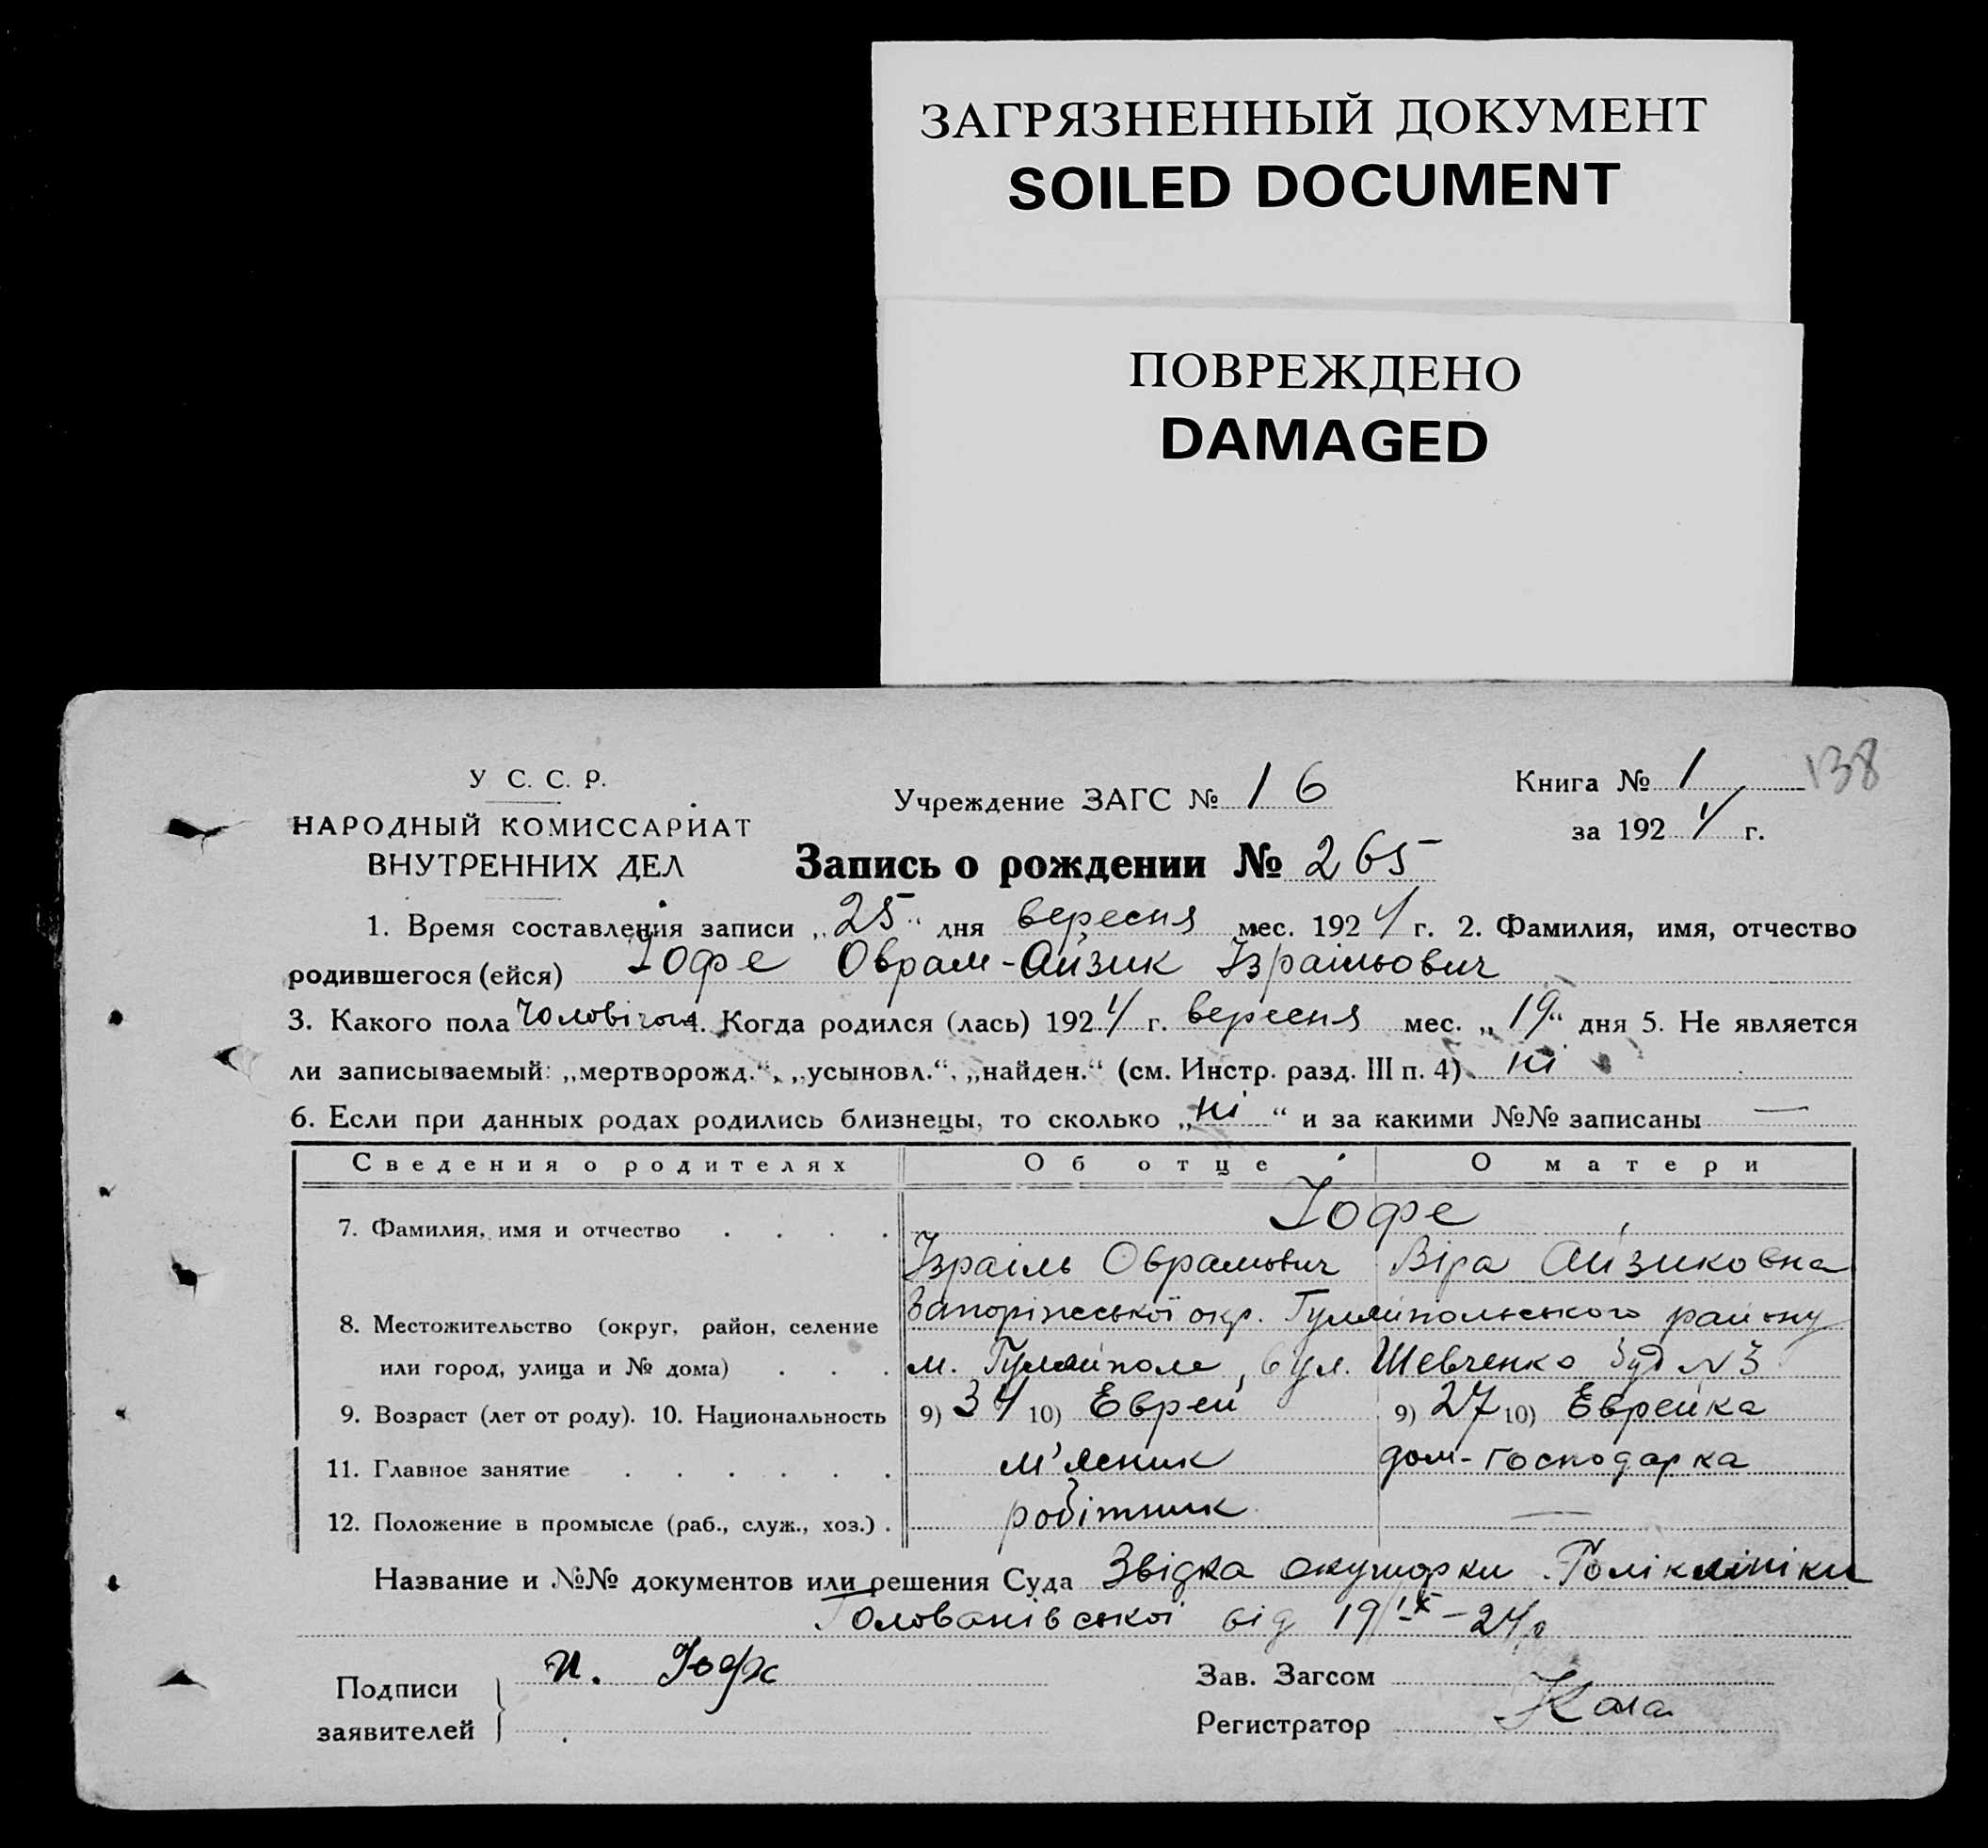 ЗАГРЯЗНЕННЫЙ ДОКУМЕНТ
SOILED DOCUMENT
ПОВРЕЖДЕНО
DAMAGED
138
У С. С. Р.
НАРОДНЫЙ КОМИССАРИАТ
ВНУТРЕННИХ ДЕЛ
Учреждение ЗАГС № 16
Книга № 1
за 1924 г.
Запись о рождении № 265
1. Время составления записи „25“ дня вересня мес. 1924 г. 2. Фамилия, имя, отчество
родившегося (ейся) Іофе Оврам-Айзик Ізраільович
3. Какого пола Чоловічого 4. Когда родился (лась) 1924 г. вересня мес. „19“ дня 5. Не является
ли записываемый: „мертворожд.“, „усыновл.“, „найден.“ (см. Инстр. разд. III п. 4) ні
6. Если при данных родах родились близнецы, то сколько „ні“ и за какими №№ записаны —
Сведения о родителях Об отце О матери
7. Фамилия, имя и отчество . . . . Іофе
Ізраіль Оврамович Віра Айзиковна
8. Местожительство (округ, район, селение Запоріжської окр. Гуляйпольського району
или город, улица и № дома) . . . м. Гуляйполе, вул. Шевченко буд № 3
9. Возраст (лет от роду). 10. Национальность 9) 34 10) Еврей 9) 27 10) Еврейка
11. Главное занятие . . . . . . м'ясник дом-господарка
12. Положение в промысле (раб., служ., хоз.) . робітник —
Название и №№ документов или решения Суда Звідка акушорки Поліклініки
від 19/IX-24р
Подписи
заявителей
И. Іофе
Зав. Загсом
Регистратор